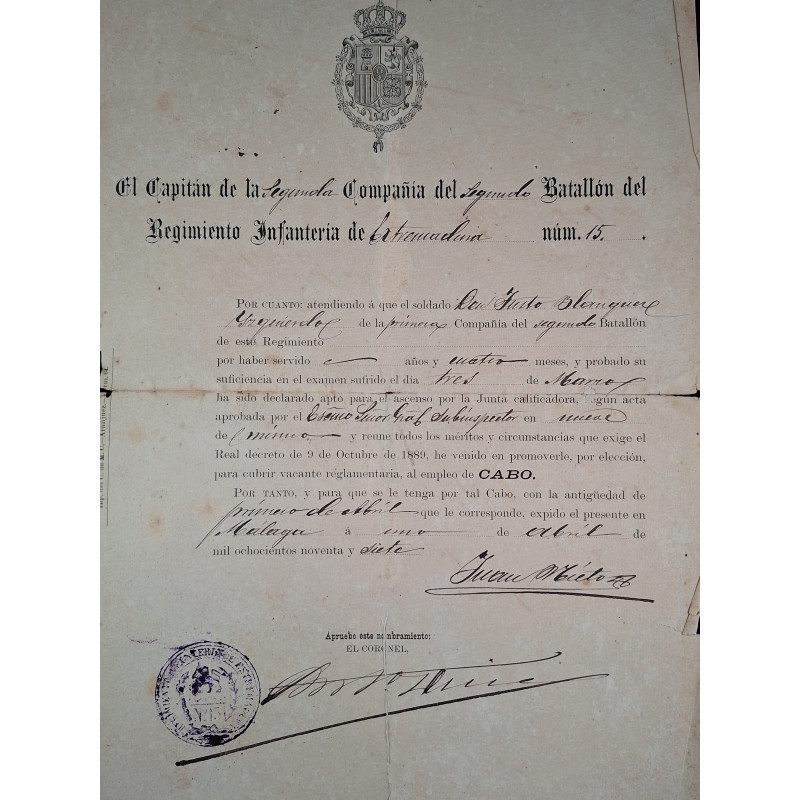 El Capitán de la Segunda Compañía del Segundo Batallón del
Regimiento Infantería de Extremadura núm. 15.
POR CUANTO: atendiendo á que el soldado Don Justo Blanquer
Yzquierdo de la primera Compañía del segundo Batallón
de este Regimiento
por haber servido años y cuatro meses, y probado su
suficiencia en el examen sufrido el día tres de Marzo
ha sido declarado apto para el ascenso por la Junta calificadora, según acta
aprobada por el Excmo Señor Gral Subinspector en nueve
de mismo y reune todos los méritos y circunstancias que exige el
Real decreto de 9 de Octubre de 1889, he venido en promoverle, por elección,
para cubrir vacante réglamentaria, al empleo de CABO.
POR TANTO, y para que se le tenga por tal Cabo, con la antigüedad de
primero de Abril que le corresponde, expido el presente en
Málaga á uno de abril de
mil ochocientos noventa y siete
Juan Nieto
Apruebo este nombramiento:
EL CORONEL,
REGIMIENTO INFANTERIA DE EXTREMADURA
Nº 15